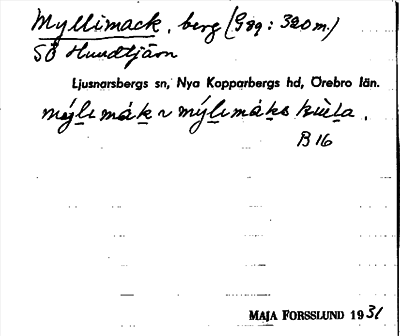 Myllimack, berg (Gäg: 320 m.)
SÖ Hundtjärn
Ljusnarsbergs sn, Nya Kopparbergs hd, Örebro län.
mýli mák ~ mýli máks
B 16
MAJA FORSSLUND 1931